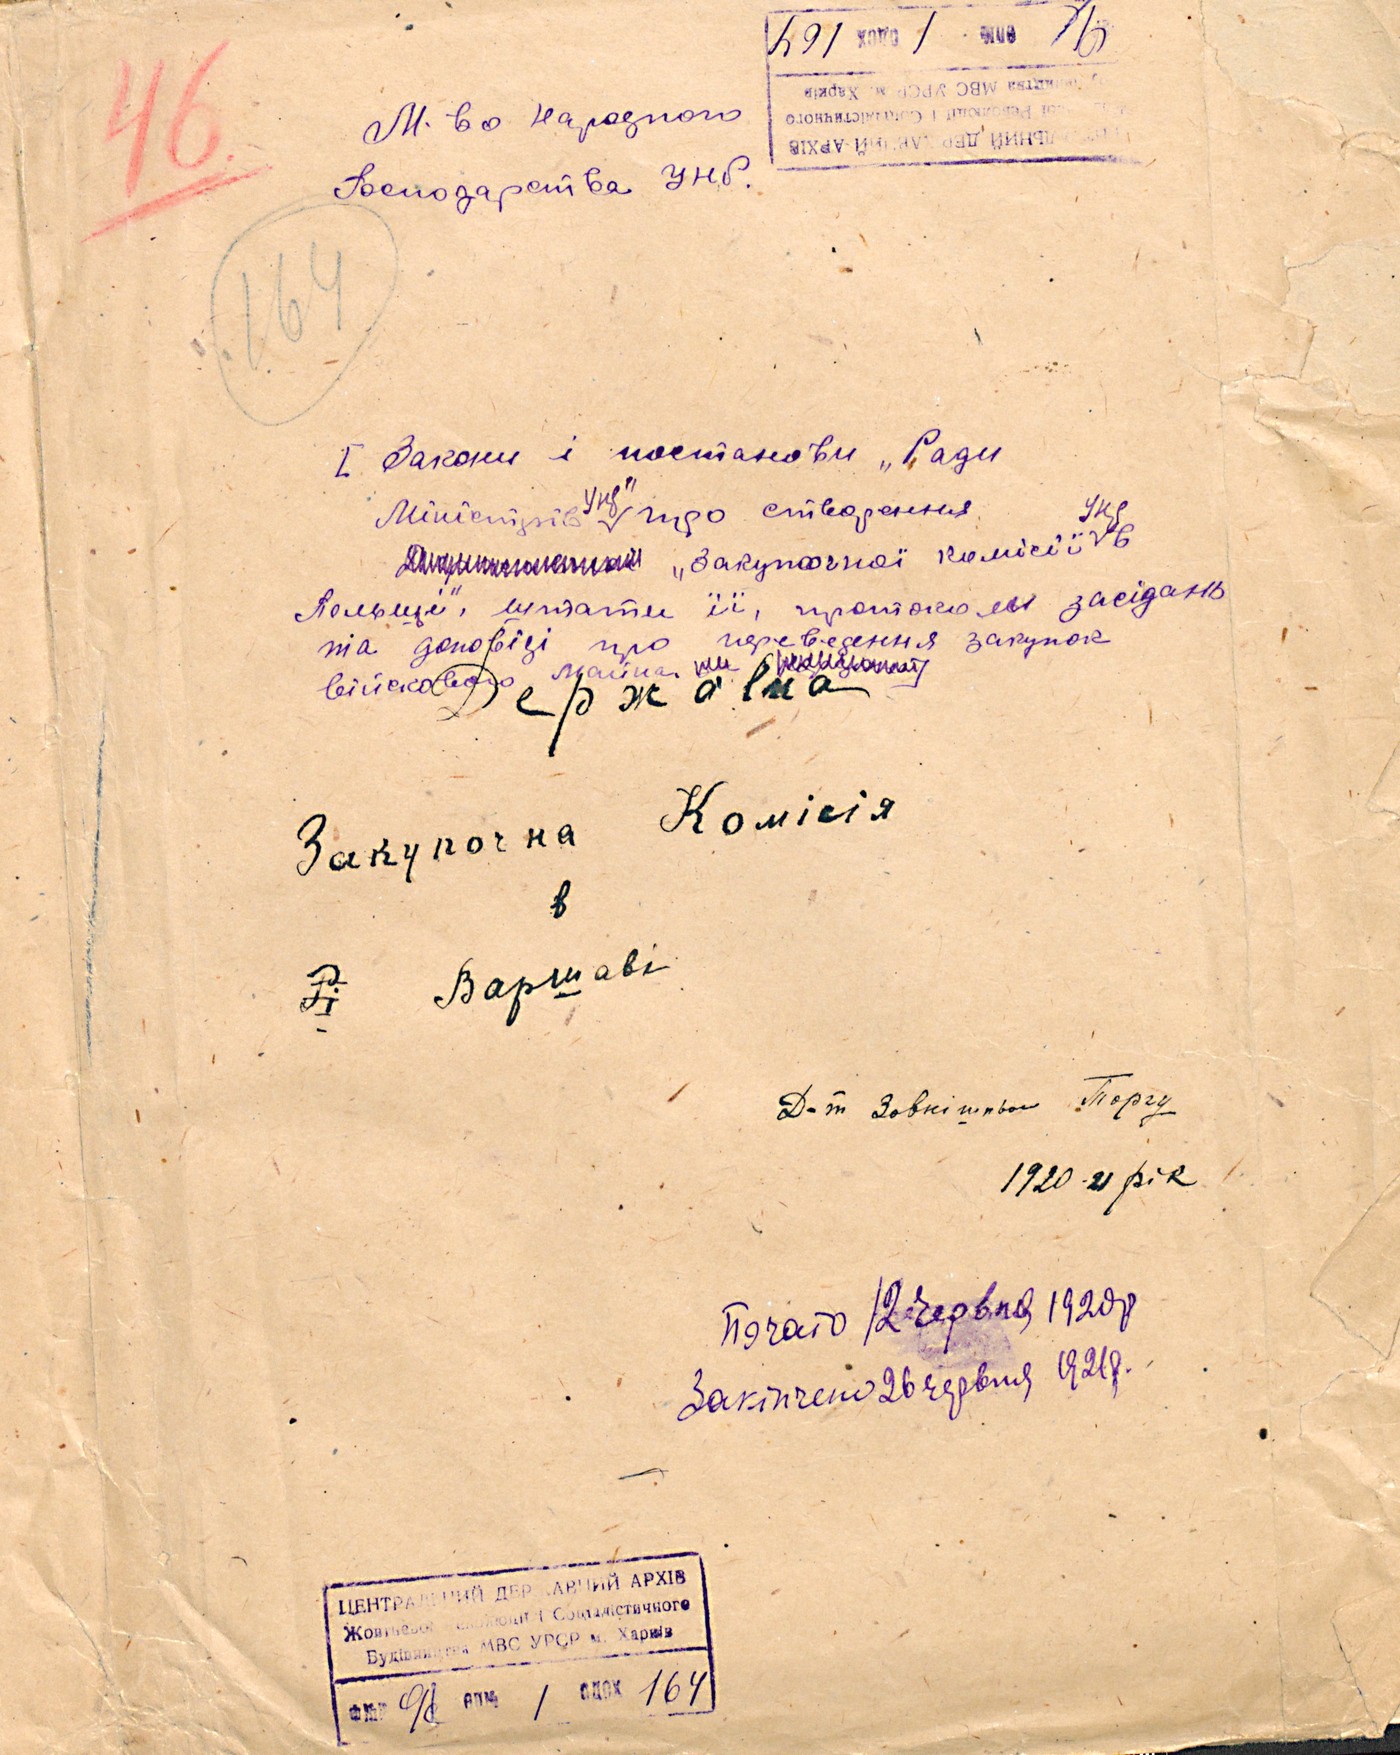 46.
М-во Народного
Господарства УНР.
164
Закони і постанови „Ради
Міністрів УНР" про створення
„Закупочної комісії УНР в
Польщі", штати її, протоколи засідань
та доповіді про переведення закупок
військового майна.
Державна
Закупочна Комісія
в
Варшаві
Д-т Зовнішньої Торгу
1920-21 рік
Почато 12 червня 1920 р
Закінчено 26 червня 1921 р.
ЦЕНТРАЛЬНИЙ ДЕРЖАВНИЙ АРХІВ
Жовтневої Революції і Соціалістичного
Будівництва МВС УРСР м. Харків
ФОНД ОПИС 1 ОДОХ 164
ЦЕНТРАЛЬНИЙ ДЕРЖАВНИЙ АРХІВ
Жовтневої Революції і Соціалістичного
Будівництва МВС УРСР м. Харків
ОПИС 1 ОДОХ 164